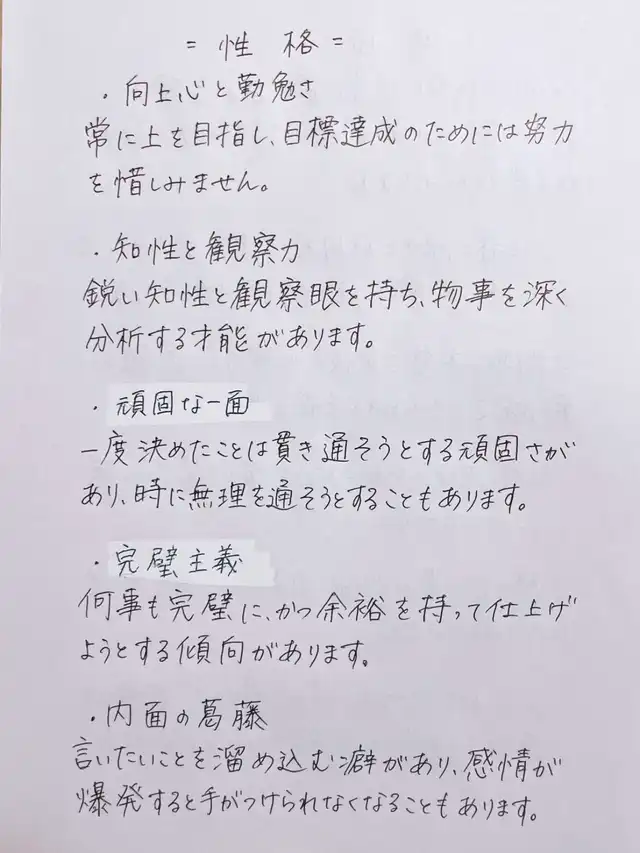 = 性 格 =
・向上心と勤勉さ
常に上を目指し、目標達成のためには努力
を惜しみません。
・知性と観察力
鋭い知性と観察眼を持ち、物事を深く
分析する才能があります。
・頑固な一面
一度決めたことは貫き通そうとする頑固さが
あり、時に無理を通そうとすることもあります。
・完璧主義
何事も完璧に、かつ余裕を持って仕上げ
ようとする傾向があります。
・内面の葛藤
言いたいことを溜め込む癖があり、感情が
爆発すると手がつけられなくなることもあります。